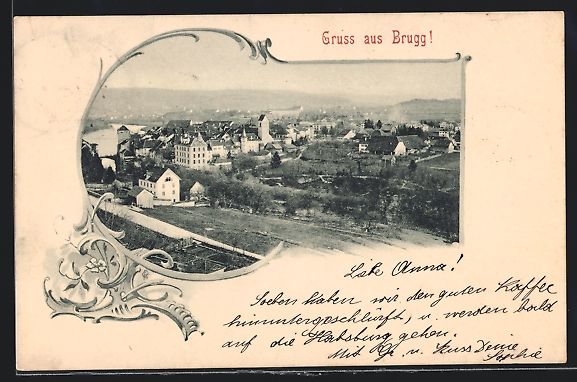 Gruss aus Brugg!
Liebe Anna!
Soeben haben wir den guten Kaffee
hinuntergeschlürft, u. werden bald
auf die Habsburg gehen.
Mit Gr. u. Kuss Deine
Sophie